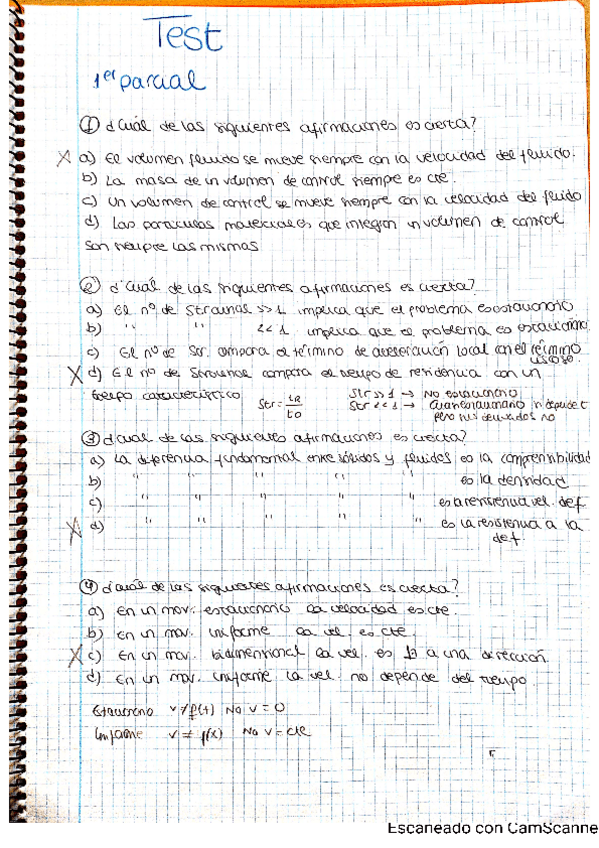 Test
1er parcial
① ¿Cuál de las siguientes afirmaciones es cierta?
X a) El volumen fluido se mueve siempre con la velocidad del fluido.
b) La masa de un volumen de control siempre es cte.
c) Un volumen de control se mueve siempre con la velocidad del fluido
d) Las partículas materiales que integran un volumen de control
son siempre las mismas
② ¿Cuál de las siguientes afirmaciones es cierta?
a) El nº de Strouhal >> 1 implica que el problema es estacionario
b) " " << 1 implica que el problema es estacionario
c) El nº de Str. compara el término de aceleración local con el término
viscoso.
X d) El nº de Strouhal compara el tiempo de residencia con un
tiempo característico
Str = tR/to
Str >> 1 → No estacionario
Str << 1 → Cuasiestacionario
③ ¿Cuál de las siguientes afirmaciones es cierta?
a) La diferencia fundamental entre sólidos y fluidos es la compresibilidad
b) " " " " es la densidad
c) " " " " es a resistencia vel. def
X d) " " " " es la resistencia a la
def.
④ ¿Cuál de las siguientes afirmaciones es cierta?
a) En un mov. estacionario la velocidad es cte.
b) En un mov. uniforme la vel. es cte.
X c) En un mov. bidimensional la vel. es a una dirección.
d) En un mov. uniforme la vel. no depende del tiempo.
Estacionario v ≠ f(t) No v = 0
Uniforme v ≠ f(x) No v = cte
Escaneado con CamScanne